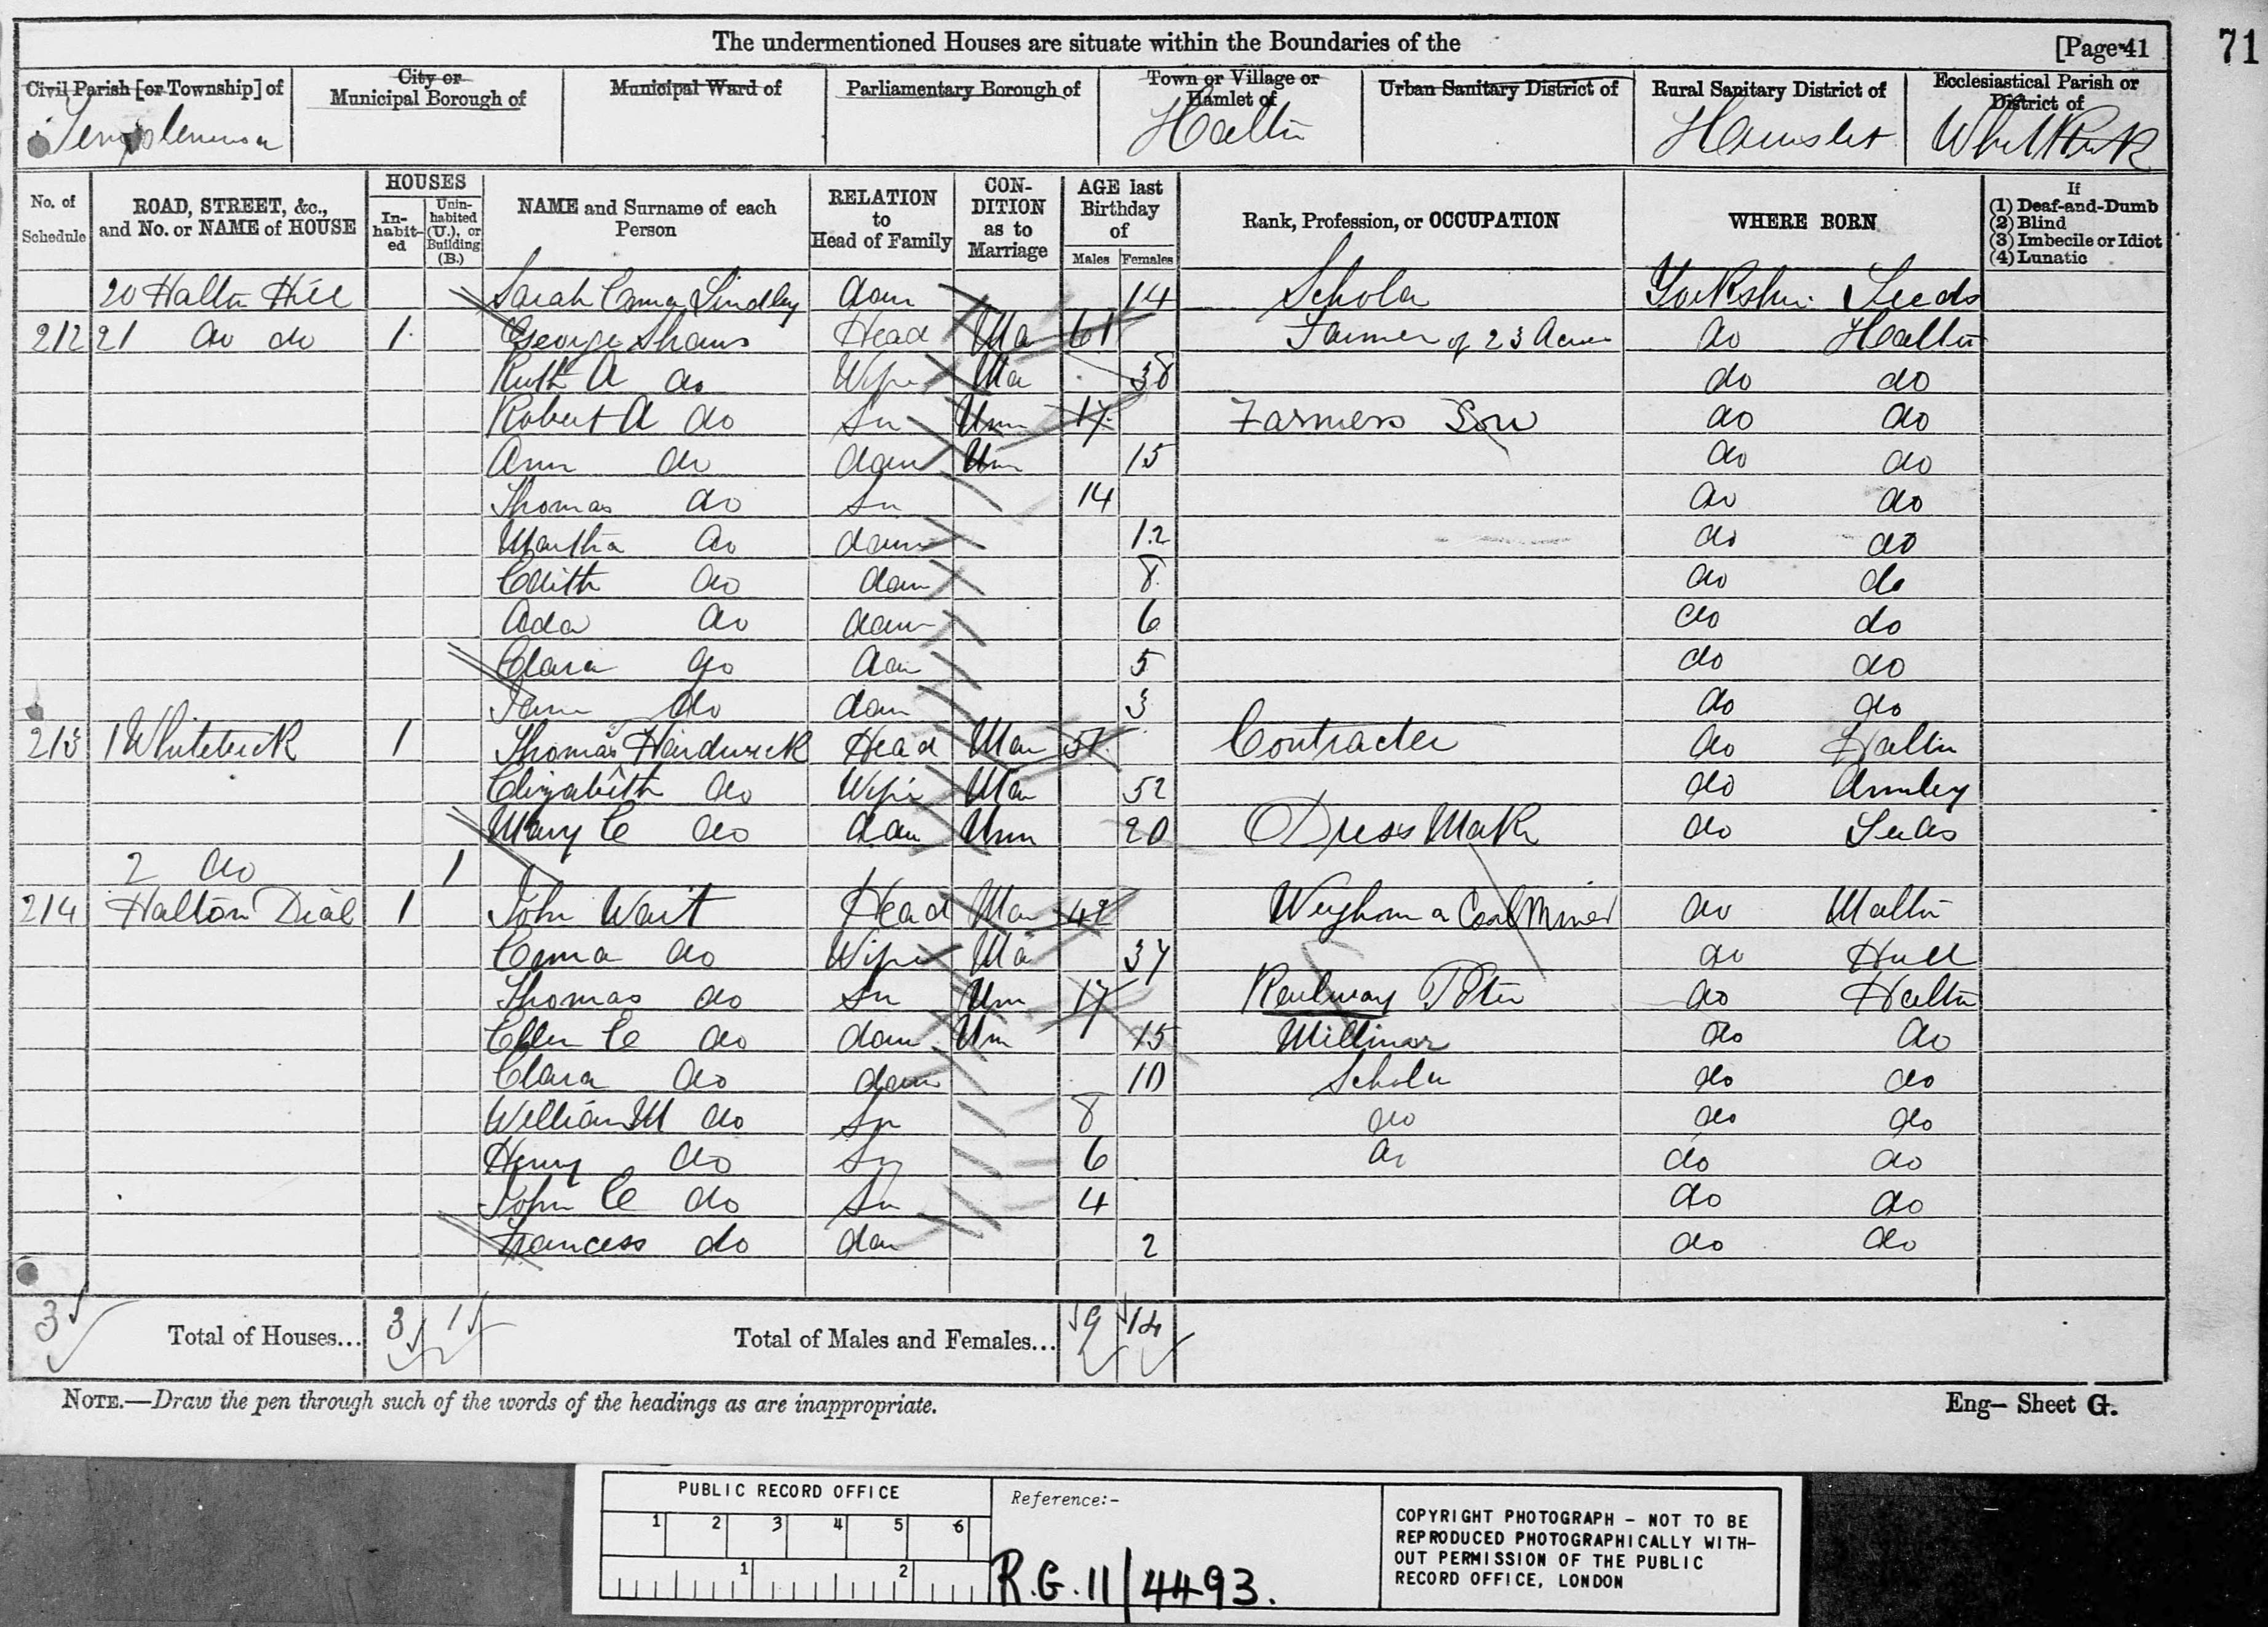 The undermentioned Houses are situate within the Boundaries of the [Page 41 71
Civil Parish [or Township] of City or Municipal Borough of Municipal Ward of Parliamentary Borough of Town or Village or Hamlet of Urban Sanitary District of Rural Sanitary District of Ecclesiastical Parish or District of
Halton Hunslet Whitkirk
No. of Schedule ROAD, STREET, &c., and No. or NAME of HOUSE HOUSES Inhabited Uninhabited (U.), or Building (B.) NAME and Surname of each Person RELATION to Head of Family CONDITION as to Marriage AGE last Birthday of Males Females Rank, Profession, or OCCUPATION WHERE BORN If (1) Deaf-and-Dumb (2) Blind (3) Imbecile or Idiot (4) Lunatic
20 Halton Hill Sarah Emma Lindley dau 14 Scholar Yorkshire Leeds
212 21 do do 1 George Shaws Head Ma 61 Farmer of 23 Acres do Halton
Ruth A do Wife Ma 38 do do
Robert A do Sn Unm 17 Farmers Son do do
Ann do dau Um 15 do do
Thomas do Sn 14 do do
Martha do dau 12 do do
Edith do dau 8 do do
Ada do dau 6 do do
Clara do dau 5 do do
Jane do dau 3 do do
213 1 Whitkirk 1 Thomas Hardwick Head Mar 51 Contracter do Halton
Elizabeth do Wife Mar 52 do Armley
Mary E do dau Unm 20 Dress Maker do Leeds
2 do 1
214 Halton Dial 1 John Wait Head Mar 42 Weighman Coal Mines do Malton
Emma do Wife Ma 37 do Hull
Thomas do Sn Um 17 Railway Poter do Halton
Ellen E do dau Um 15 Milliner do do
Clara do dau 10 Scholar do do
William M do Sn 8 do do do
Henry do Sn 6 do do do
John E do Sn 4 do do
Francess do dau 2 do do
3 Total of Houses... 3 1 Total of Males and Females... 9 14
NOTE.—Draw the pen through such of the words of the headings as are inappropriate. Eng— Sheet G.
PUBLIC RECORD OFFICE
1 2 3 4 5 6
1 2
Reference:-
R.G. 11/4493.
COPYRIGHT PHOTOGRAPH - NOT TO BE
REPRODUCED PHOTOGRAPHICALLY WITH-
OUT PERMISSION OF THE PUBLIC
RECORD OFFICE, LONDON